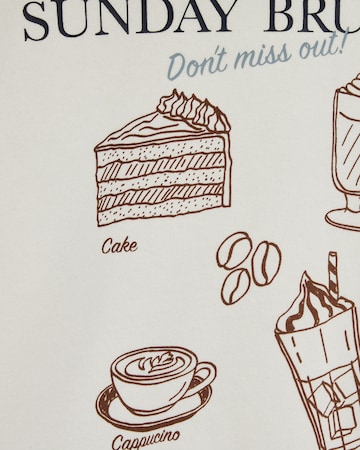 SUNDAY BRU
Don't miss out!
Cake
Cappucino